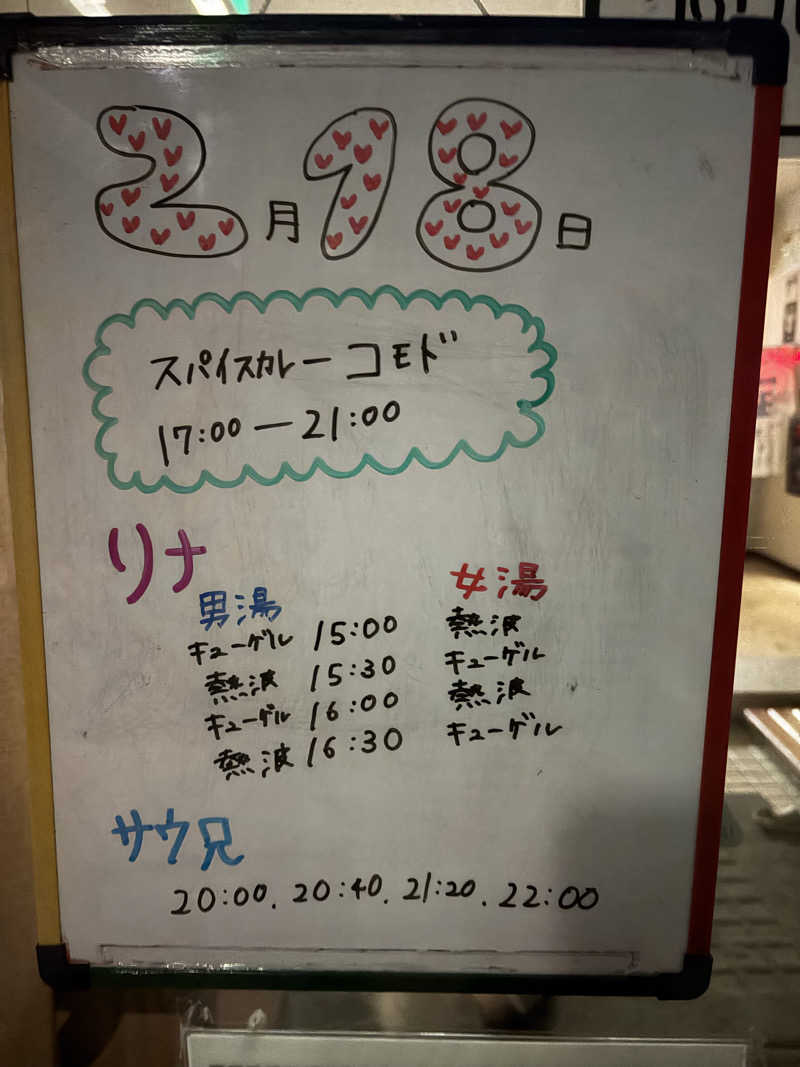 2月18日
スパイスカレー コモド
17:00ー21:00
リナ
男湯 女湯
キューゲル 15:00 熱波
熱波 15:30 キューゲル
キューゲル 16:00 熱波
熱波 16:30 キューゲル
サウ兄
20:00. 20:40. 21:20. 22:00